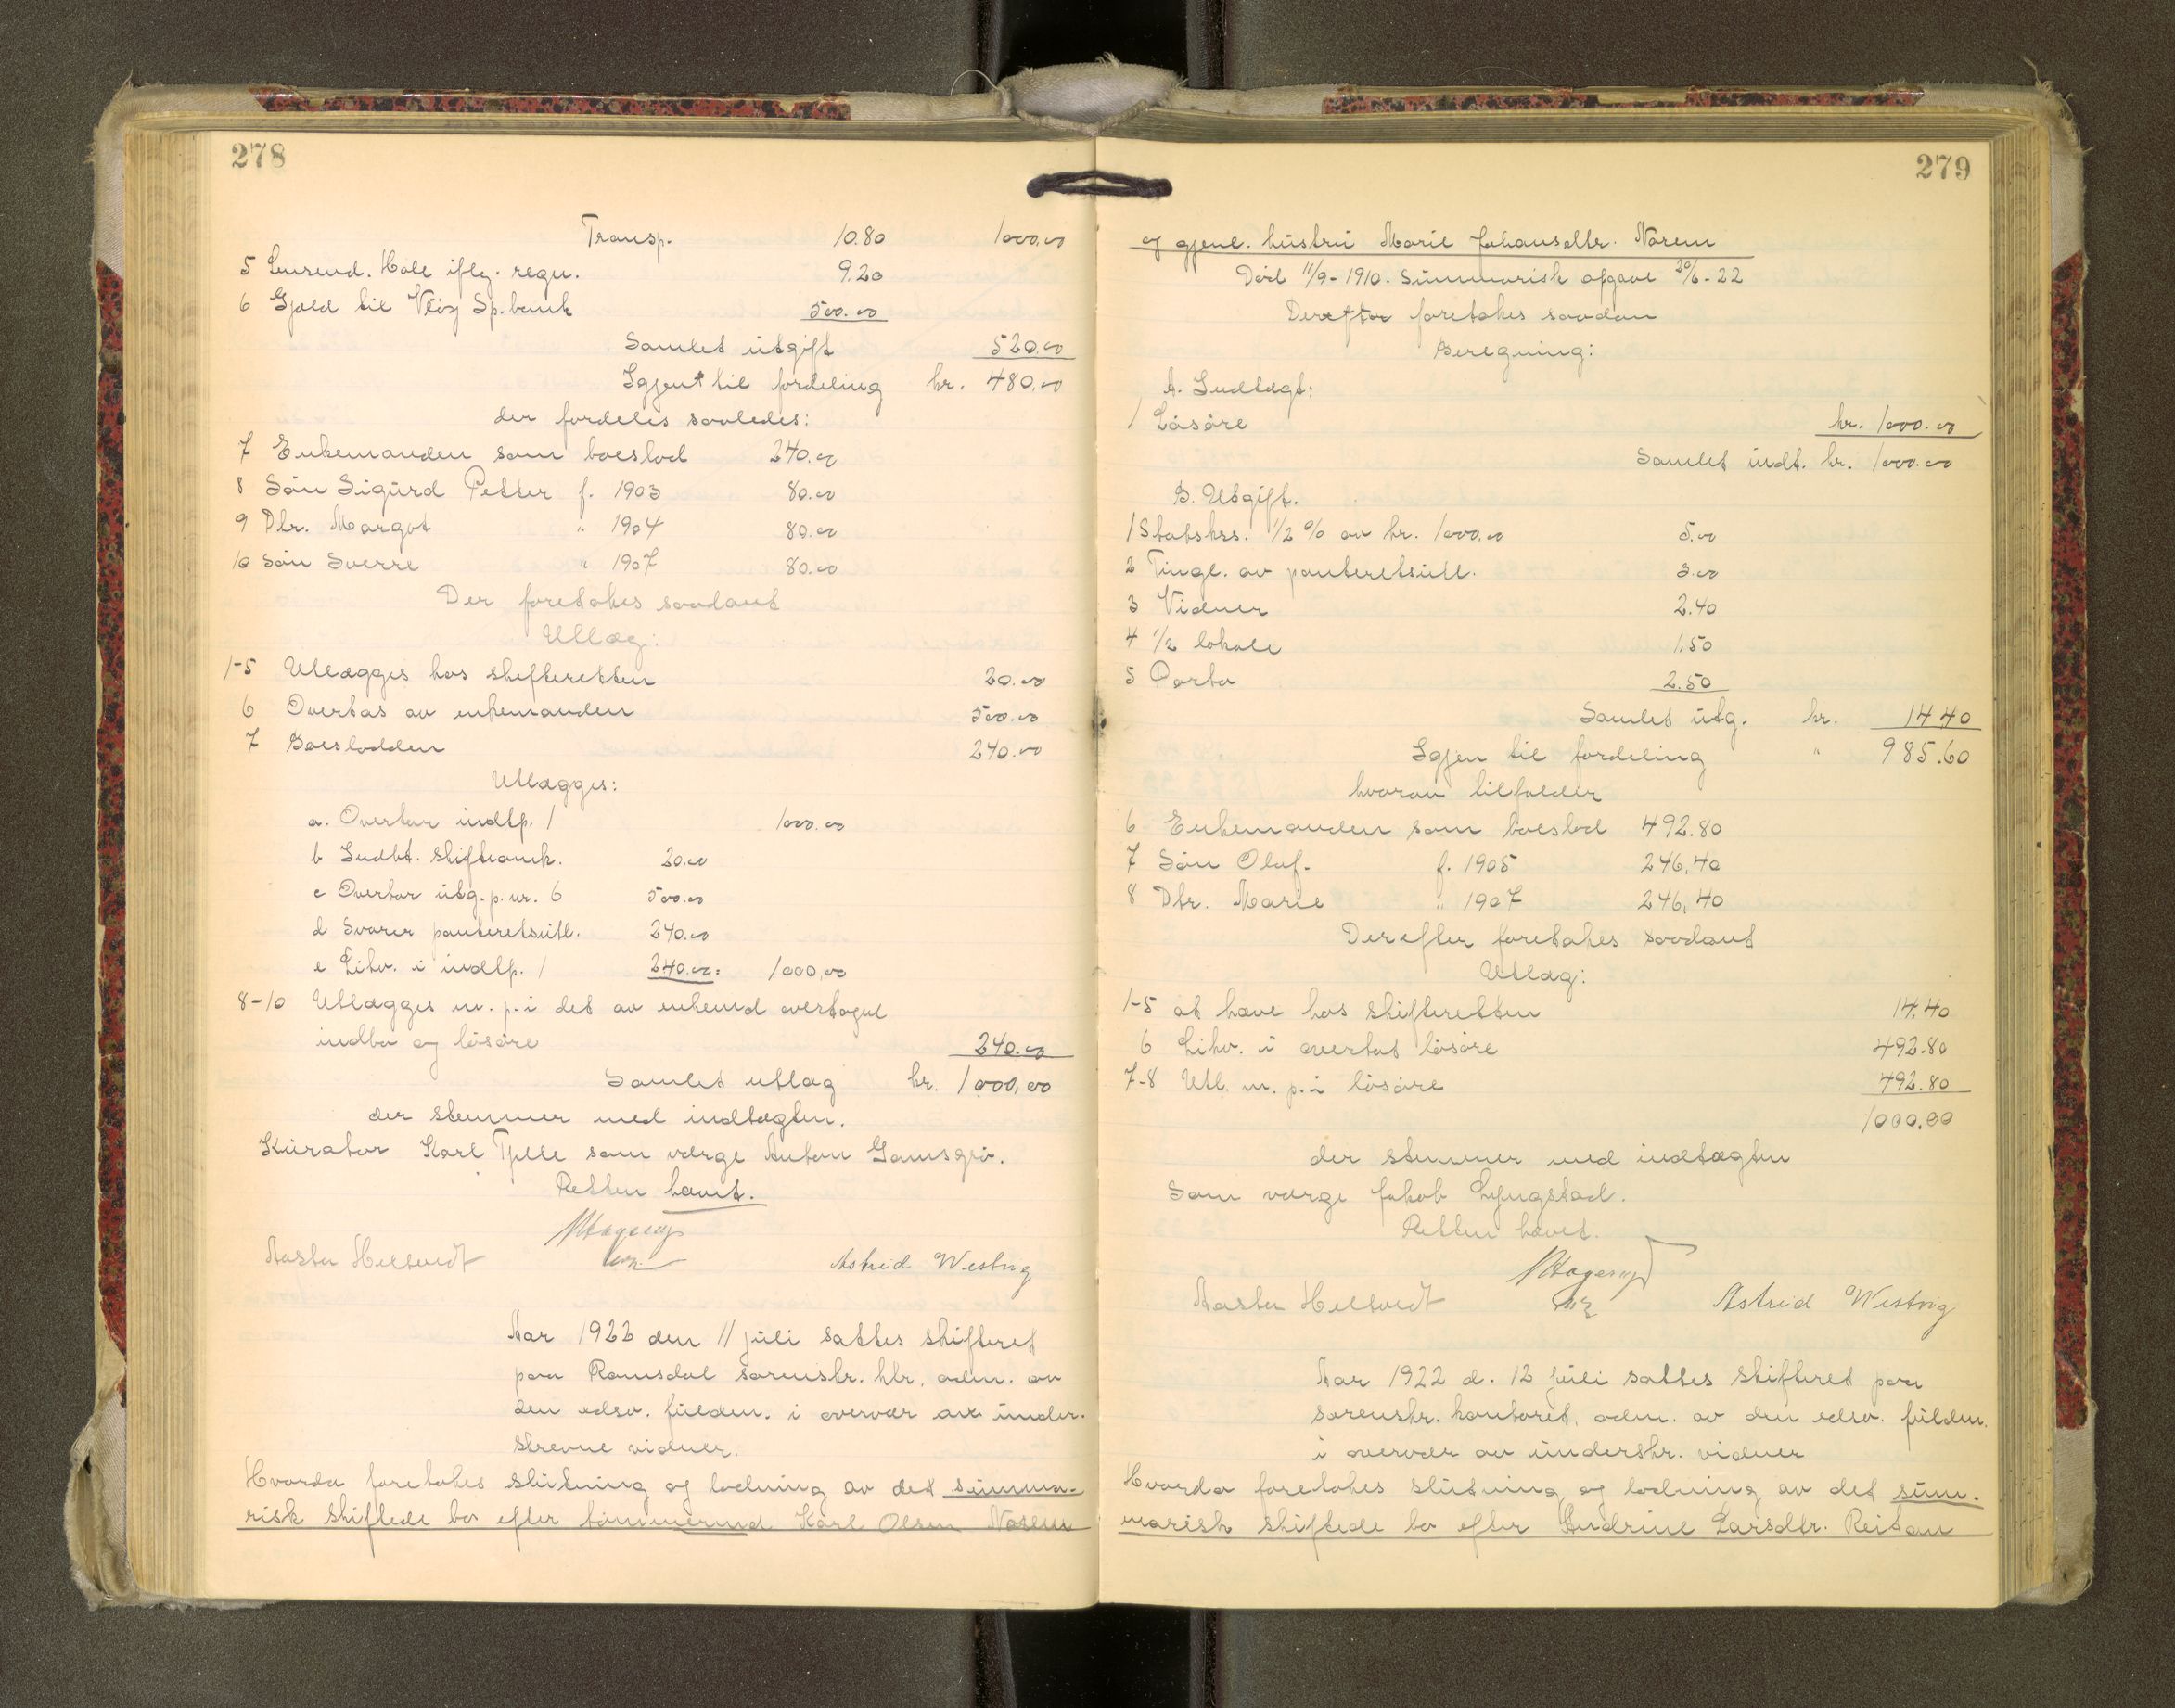 278
Transp. 10.80 1000.00
5 Lensmd. Hole iflg. regn. 9.20
6 Gjæld til Veöy Sp.bank 500.00
Samlet utgift 520.00
Igjen til fordeling kr. 480.00
der fordeles saaledes:
7 Enkemanden som boeslod 240.00
8 Sön Sigurd Petter f. 1903 80.00
9 Dtr. Margot " 1904 80.00
10 Sön Sverre " 1907 80.00
Der foretakes saadant
Utlæg:
1-5 Utlægges hos skifteretten 20.00
6 Overtas av enkemanden 500.00
7 Boeslodden 240.00
Utlægges:
a. Overtar indtp. 1 1000.00
b Indbt. skifteomk. 20.00
c Overtar utg. p. nr. 6 500.00
d Svarer panteretsutl. 240.00
e Likv. i indtp. 1 240.00 = 1000,00
8-10 Utlægges m. p. i det av enkemd overtagne
indbo og lösöre 240.00
Samlet utlæg kr. 1000,00
der stemmer med indtægten.
Kurator Karl Tjelle som værge Anton Gamsgrö.
Retten hævet.
NHagerup
Aasta Heltvedt Astrid Westvig
Aar 1922 den 11 juli sattes skifteret
paa Romsdal sorenskr. ktr. adm. av
den edsv. fuldm. i overvær av under-
skrevne vidner.
Hvorda foretakes slutning og lodning av det summa-
risk skiftede bo efter tömmermd Karl Olsen Nören
279
og gjenl. hustru Marie Johansdtr. Nören
Död 11/9-1910. Summarisk opgave 20/6-22
Derefter foretakes saadan
Beregning:
A. Indtægt:
1 Lösöre kr. 1000.00
Samlet indt. kr. 1000.00
B. Utgift.
1 Statskss. 1/2 % av kr. 1000.00 5.00
2 Tingl. av panteretsutl. 3.00
3 Vidner 2.40
4 1/2 lokale 1.50
5 Porto 2.50
Samlet utg. kr. 14.40
Igjen til fordeling " 985.60
hvorav tilfalder
6 Enkemanden som boeslod 492.80
7 Sön Olaf. f. 1905 246,40
8 Dtr. Marie " 1907 246,40
Derefter foretakes saadant
Utlæg:
1-5 at hæve hos skifteretten 14.40
6 Likv. i overtat lösöre 492.80
7-8 Utl. m. p. i lösöre 492.80
1000.00
der stemmer med indtægten
Som værge Jakob Lyngstad.
Retten hævet.
NHagerup
Aasta Heltvedt Astrid Westvig
Aar 1922 d. 12 juli sattes skifteret paa
sorenskr. kontoret, adm. av den edsv. fuldm.
i overvær av underskr. vidner
Hvorda foretakes slutning og lodning av det sum-
marisk skiftede bo efter Andrine Larsdtr. Reitan